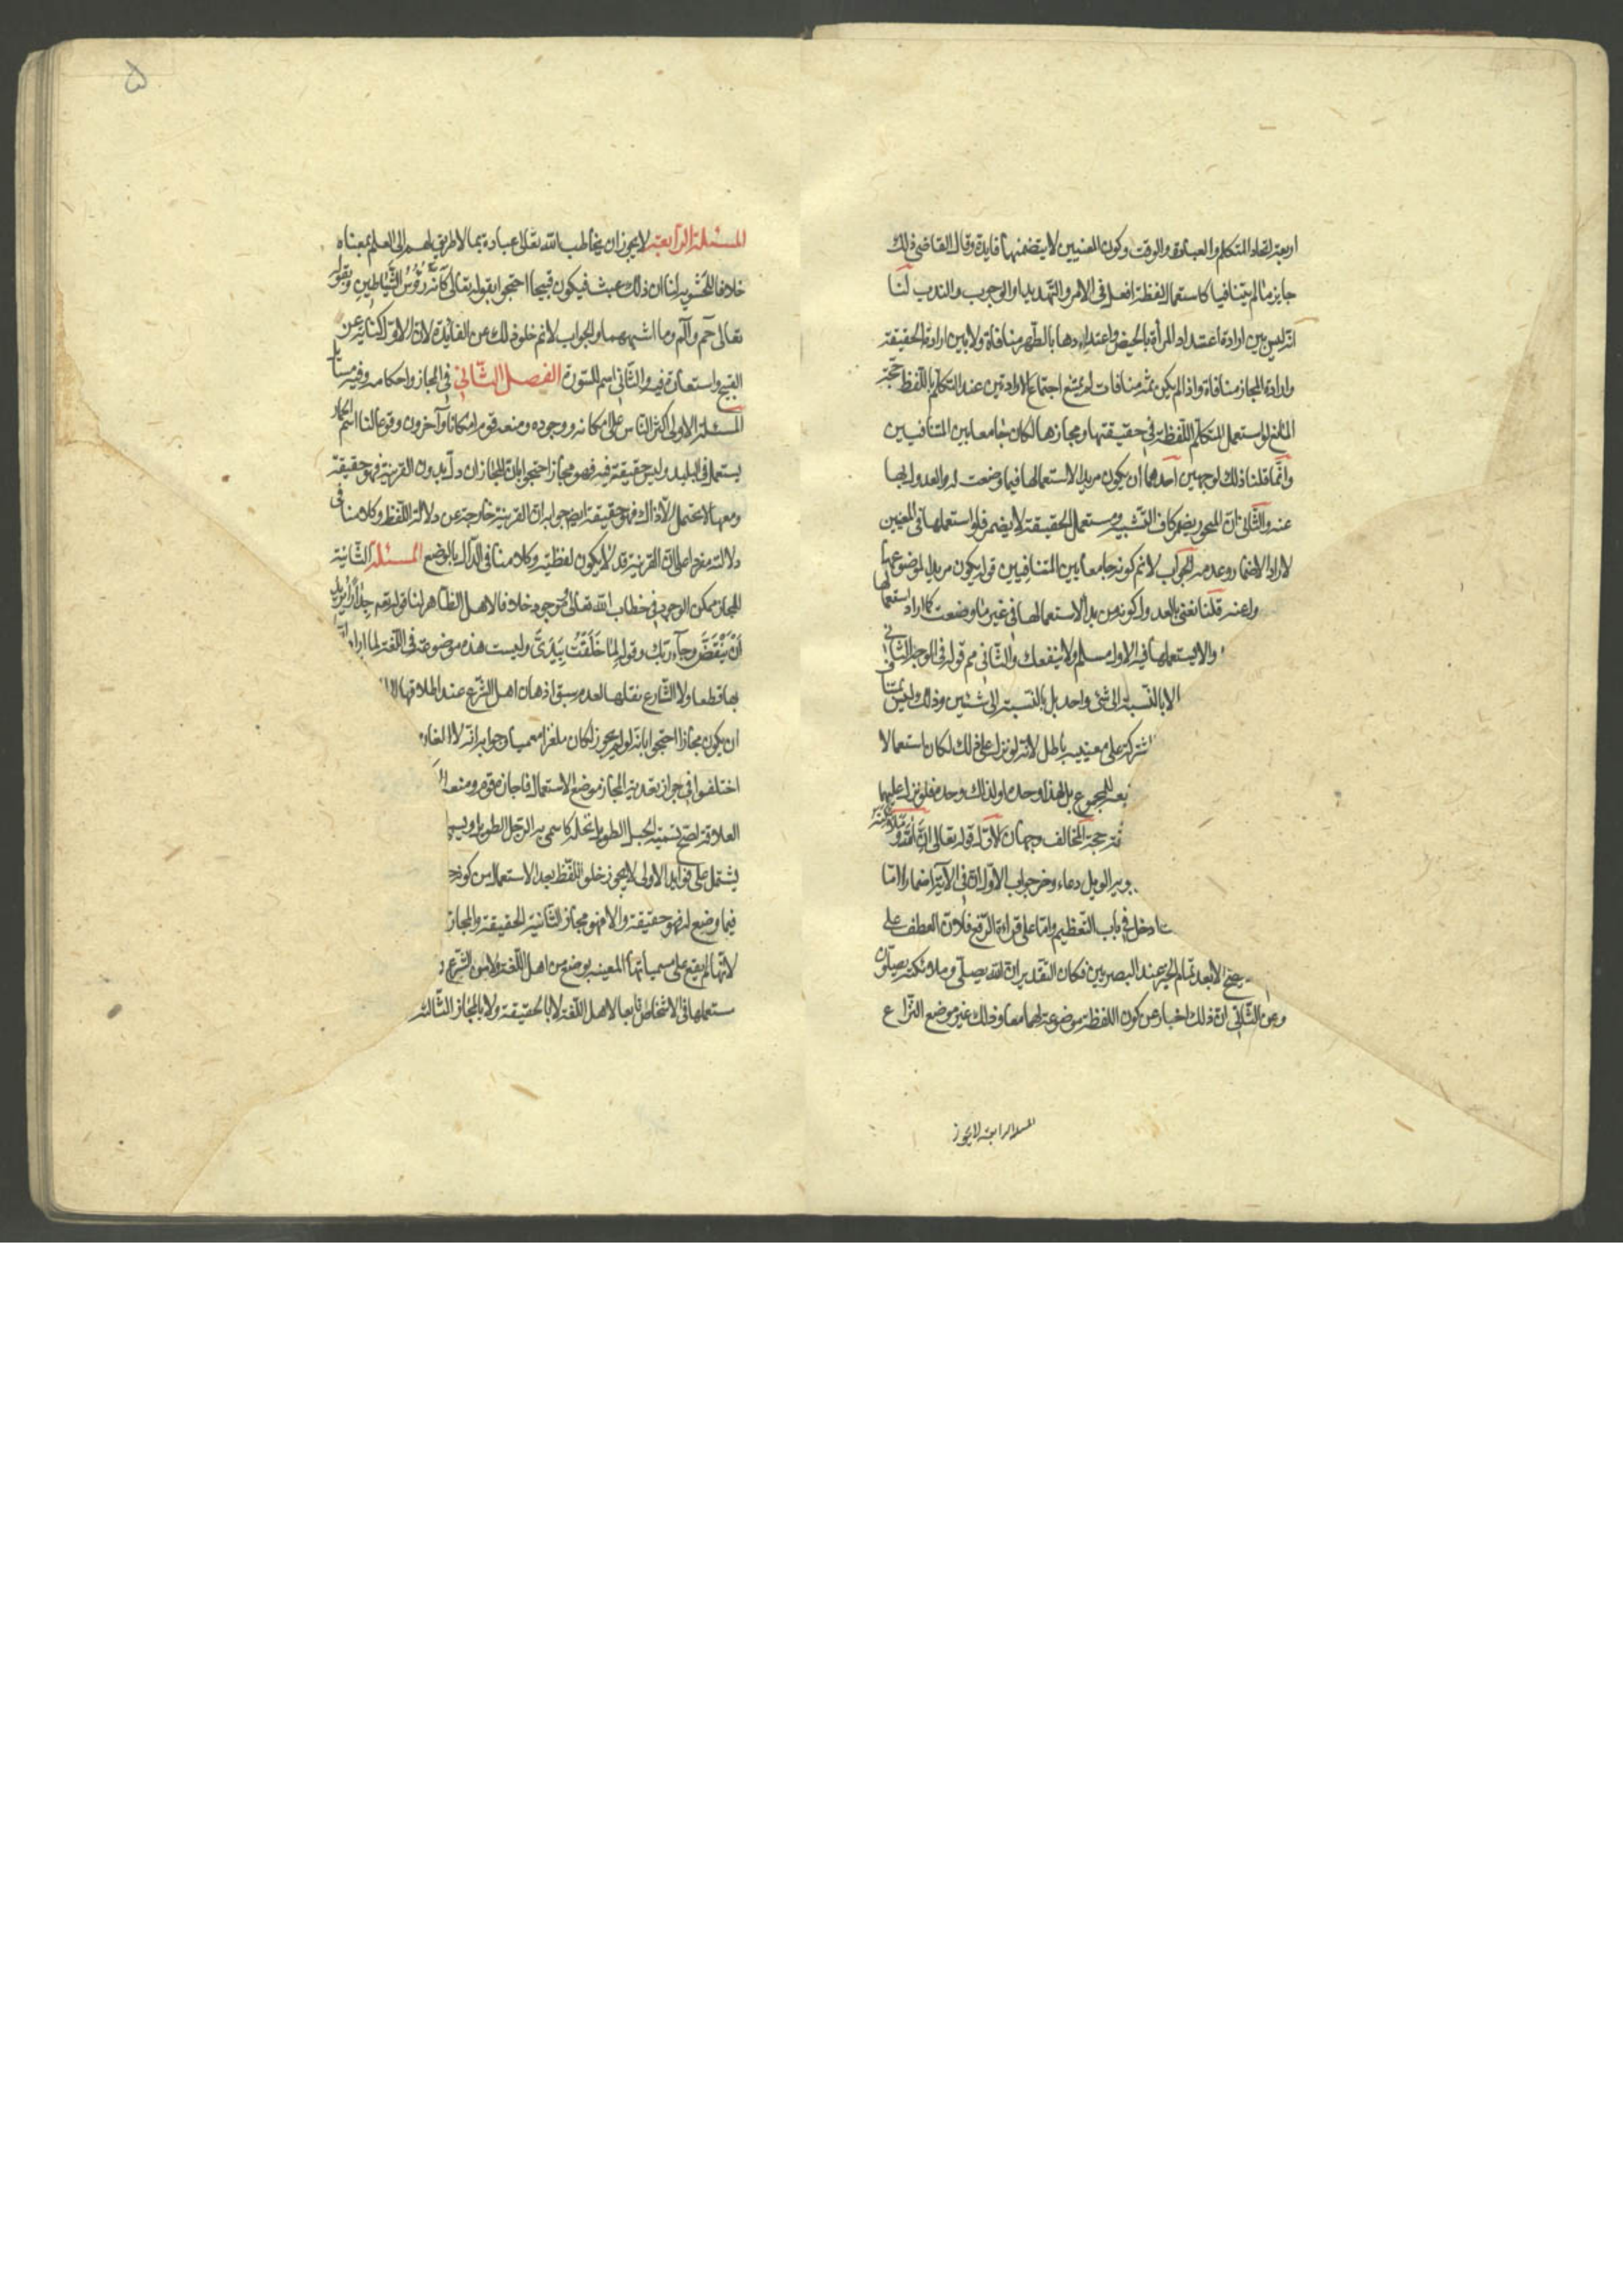 اربعة اتحاد المتكلم والعبارة والوقت وكون المعنيين لا يتضمنهما فايدة وقال القاضي ذلك
جايز ما لم يتنافيا كاستعمال لفظة افعل في الامر والتهديد او الوجوب والندب لنا
انه ليس بين ارادة اعتداد المرأة بالحيض واعتدادها بالطهر منافاة ولا بين ارادة الحقيقة
وارادة المجاز منافاة واذا لم يكن ثمه منافات لم يمتنع اجتماع الارادتين عند التكلم باللفظ حجة
المانع لو استعمل المتكلم اللفظة في حقيقتها ومجازها لكان جامعا بين المتنافيين
وانما قلنا ذلك لوجهين احدهما ان يكون مريدا لاستعمالها فيما وضعت له والعدول بها
عنه والثاني ان المجوز يضمر كاف التشبيه ومستعمل الحقيقة لا يضمر فلو استعملها في المعنيين
لاراد الاضمار وعدمه الجواب لا نم كونه جامعا بين المتنافيين قوله يكون مريدا لموضوعها
ولعنه قلنا نعني بالعدول كونه مريدا لاستعمالها في غير ما وضعت كما اراد استعمالها
والا يستعملها فيه الاول مسلم ولا ينفعك والثاني مم قوله في الوجه الثاني
الا بالنسبة الى شئ واحد بل بالنسبة الى شيئين وذلك وليس
شتركة على معنييه باطل لانه لو نزل على ذلك لكان استعمالا
للمجموع بل لهذا وحده او لذاك وحده فلو نزل عليهما
حجة المخالف وجهان الاول قوله تعالى ان الله وملائكته
الويل دعاء وخبر جواب الاول ان في الآية اضمارا اما
دخل في باب التعظيم واما على قراءة الرفع فلان العطف على
يصح الا بعد تمام الخبر عند البصريين فكان التقدير ان الله يصلي وملائكته يصلون
وعن الثاني ان ذلك اخبار عن كون اللفظة موضوعة لهما معا وذلك غير موضع النزاع
المسئلة الرابعة لا يجوز
۵
المسئلة الرابعة لا يجوز ان يخاطب الله تعالى عباده بما لا طريق لهم الى العلم بمعناه
خلافا للحشوية لنا ان ذلك عبث فيكون قبيحا احتجوا بقوله تعالى كانه رؤس الشياطين وبقوله
تعالى حم والم وما اشبههما والجواب لا نم خلو ذلك عن الفايدة لان الاول كناية عن
القبح واستعارة فيه والثاني اسم للسورة الفصل الثاني في المجاز واحكامه وفيه مسائل
المسئلة الاولى اكثر الناس على امكانه ووجوده ومنعه قوم امكانا وآخرون وقوعا لنا اسم الحمار
يستعمل في البليد وليس حقيقة فيه فهو مجاز احتجوا بان المجاز ان دل بدون القرينة فهو حقيقة
ومعها لا يحتمل الا ذاك فهو حقيقة ايضا جوابه ان القرينة خارجة عن دلالة اللفظ وكلامنا في
دلالته مفردا على ان القرينة قد لا يكون لفظية وكلامنا في الدال بالوضع المسئلة الثانية
المجاز ممكن الوجود في خطاب الله تعالى وموجود خلافا لاهل الظاهر لنا قوله تعم جدارا يريد
ان ينقض وجاء ربك وقوله لما خلقت بيدي وليست هذه موضوعة في اللغة لما اراد
بها قطعا ولا الشارع نقلها لعدم سبق اذهان اهل الشرع عند اطلاقها
ان يكون مجازا احتجوا بانه لو لم يجوز لكان ملغزا معميا وجوابه انه لا الغاز
اختلفوا في جواز تعدية المجاز موضع الاستعمال فاجازه قوم ومنعه
العلاقة لصح تسمية الجبل الطويل نخلة كما سمى به الرجل الطويل
يشتمل على فوايد الاولى لا يجوز خلو اللفظ بعد الاستعمال من كونه
فيما وضع له فهو حقيقة والا فهو مجاز الثانية الحقيقة والمجاز
لانها لم يقع على مسمياتها المعينه بوضع من اهل اللغة ولا من الشرع
مستعملها في الاشخاص تابعا لاهل اللغة لا بالحقيقة ولا بالمجاز الثالثة